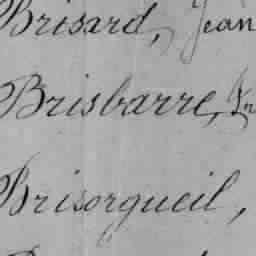 Brisard, Jean
Brisbarre,
Brisorgueil,